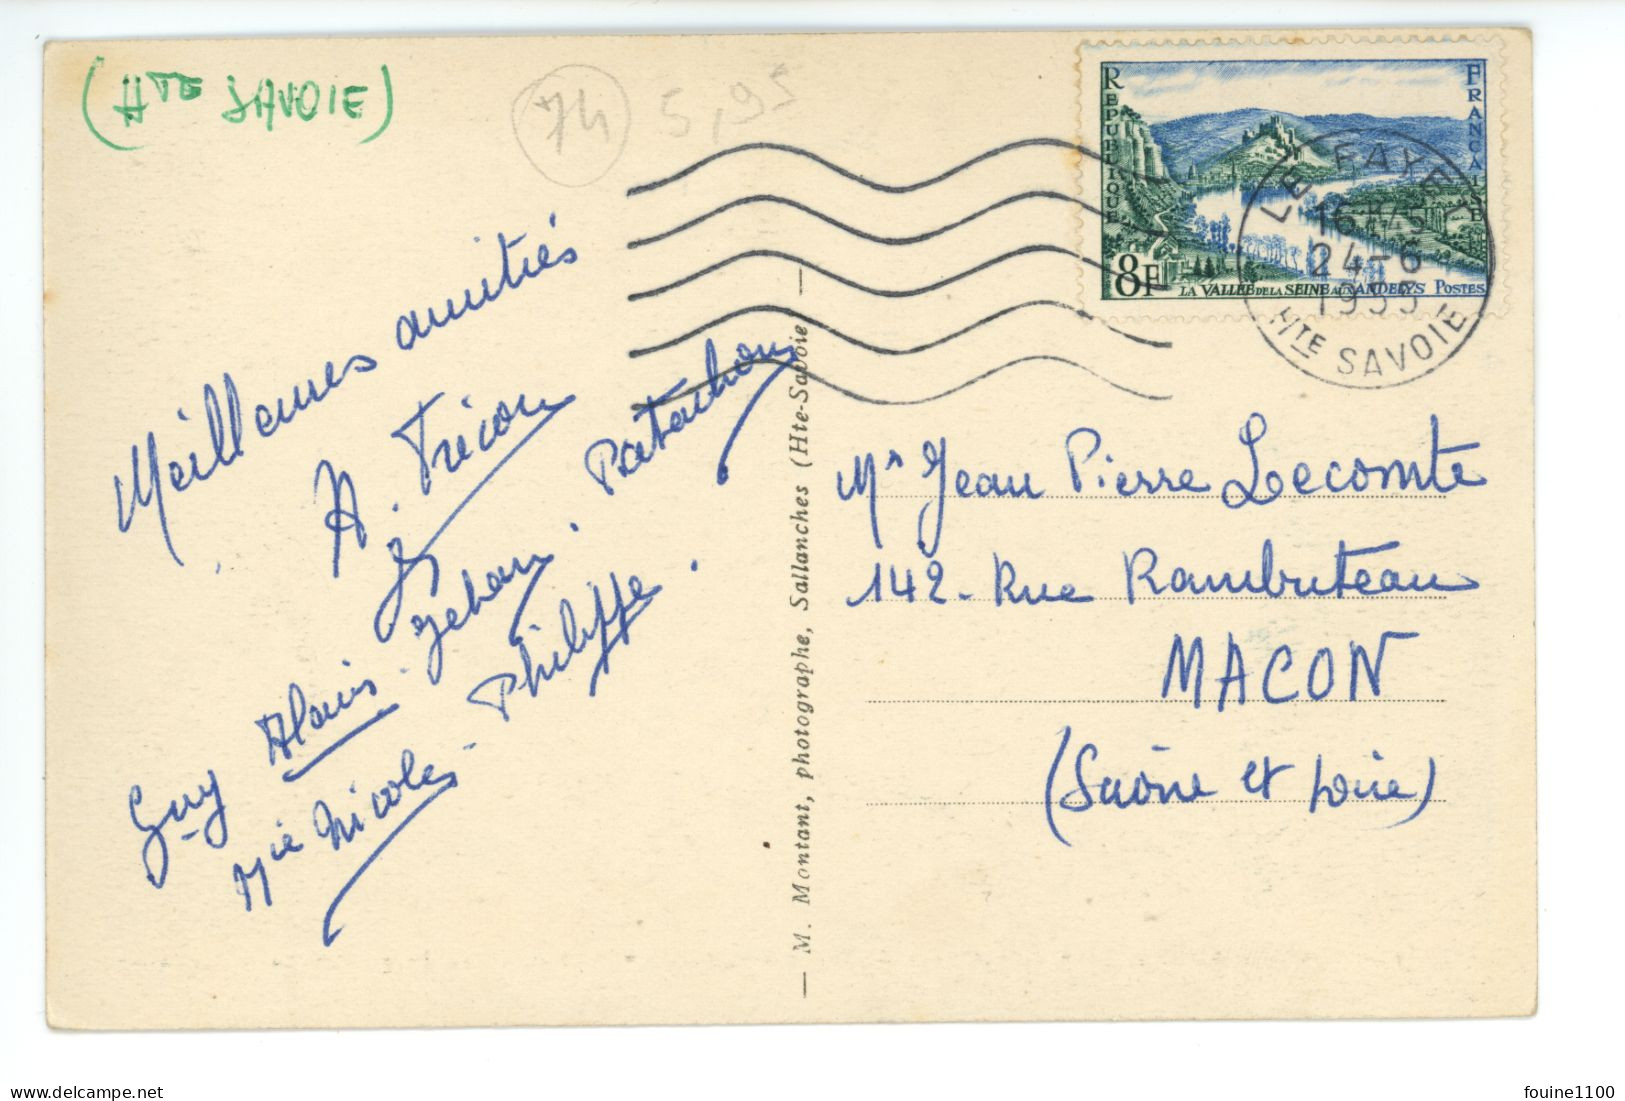 (Hte SAVOIE)
74
5,95
RÉPUBLIQUE FRANÇAISE
8F
LA VALLÉE DE LA SEINE AUX ANDELYS POSTES
LE FAYET
16H45
24-6
1955
Hte SAVOIE
Meilleures amitiés
A. Tricon
Patachon
Jehan
Alain
Philippe
Guy
Mie Nicole
— M. Montant, photographe, Sallanches (Hte-Savoie) —
Mr Jean Pierre Lecomte
142 - Rue Rambuteau
MACON
(Saône et Loire)
fouine1100